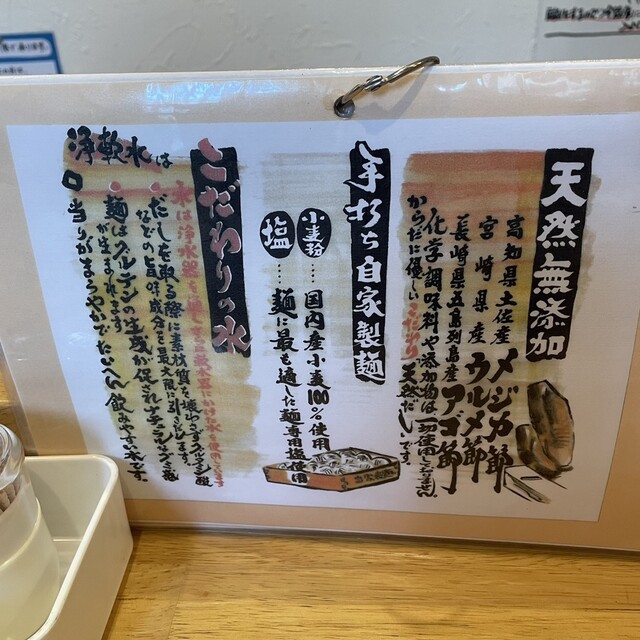 天然無添加
高知県土佐産 メジカ節
宮崎県産 ウルメ節
長崎県五島列島産 アゴ節
化学調味料や添加物は一切使用しておりません
からだに優しいこだわり天然だしです。
手打ち自家製麺
小麦粉…国内産小麦100%使用
塩…麺に最も適した麺専用塩使用
こだわりの水
水は浄水器を
浄軟水は
だしを取る際に素材質を壊さずグルタミン酸
などの旨味成分を最大限に引き出します。
麺はグルテンの生成が促され
が生まれます
口当りがまろやかでたいへん飲みやすい水です。